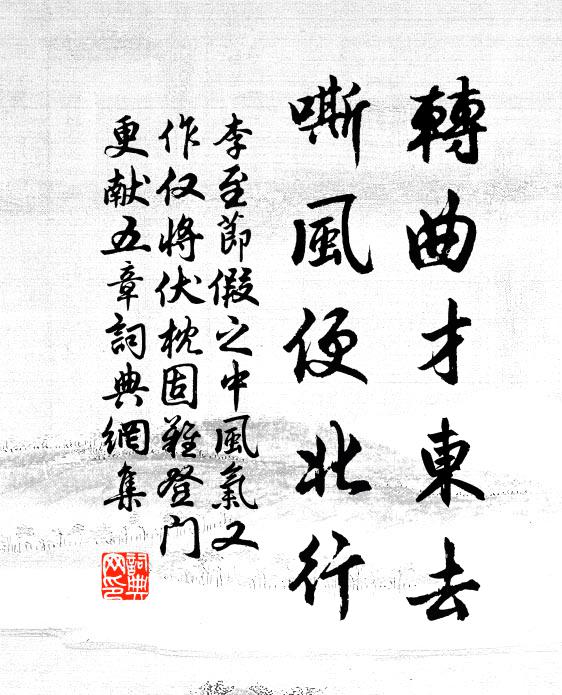 轉曲才東去
嘶風便北行
李至節假之中風氣又
作仅將伏枕固難登门
更献五章詞典網集
詞典
网印